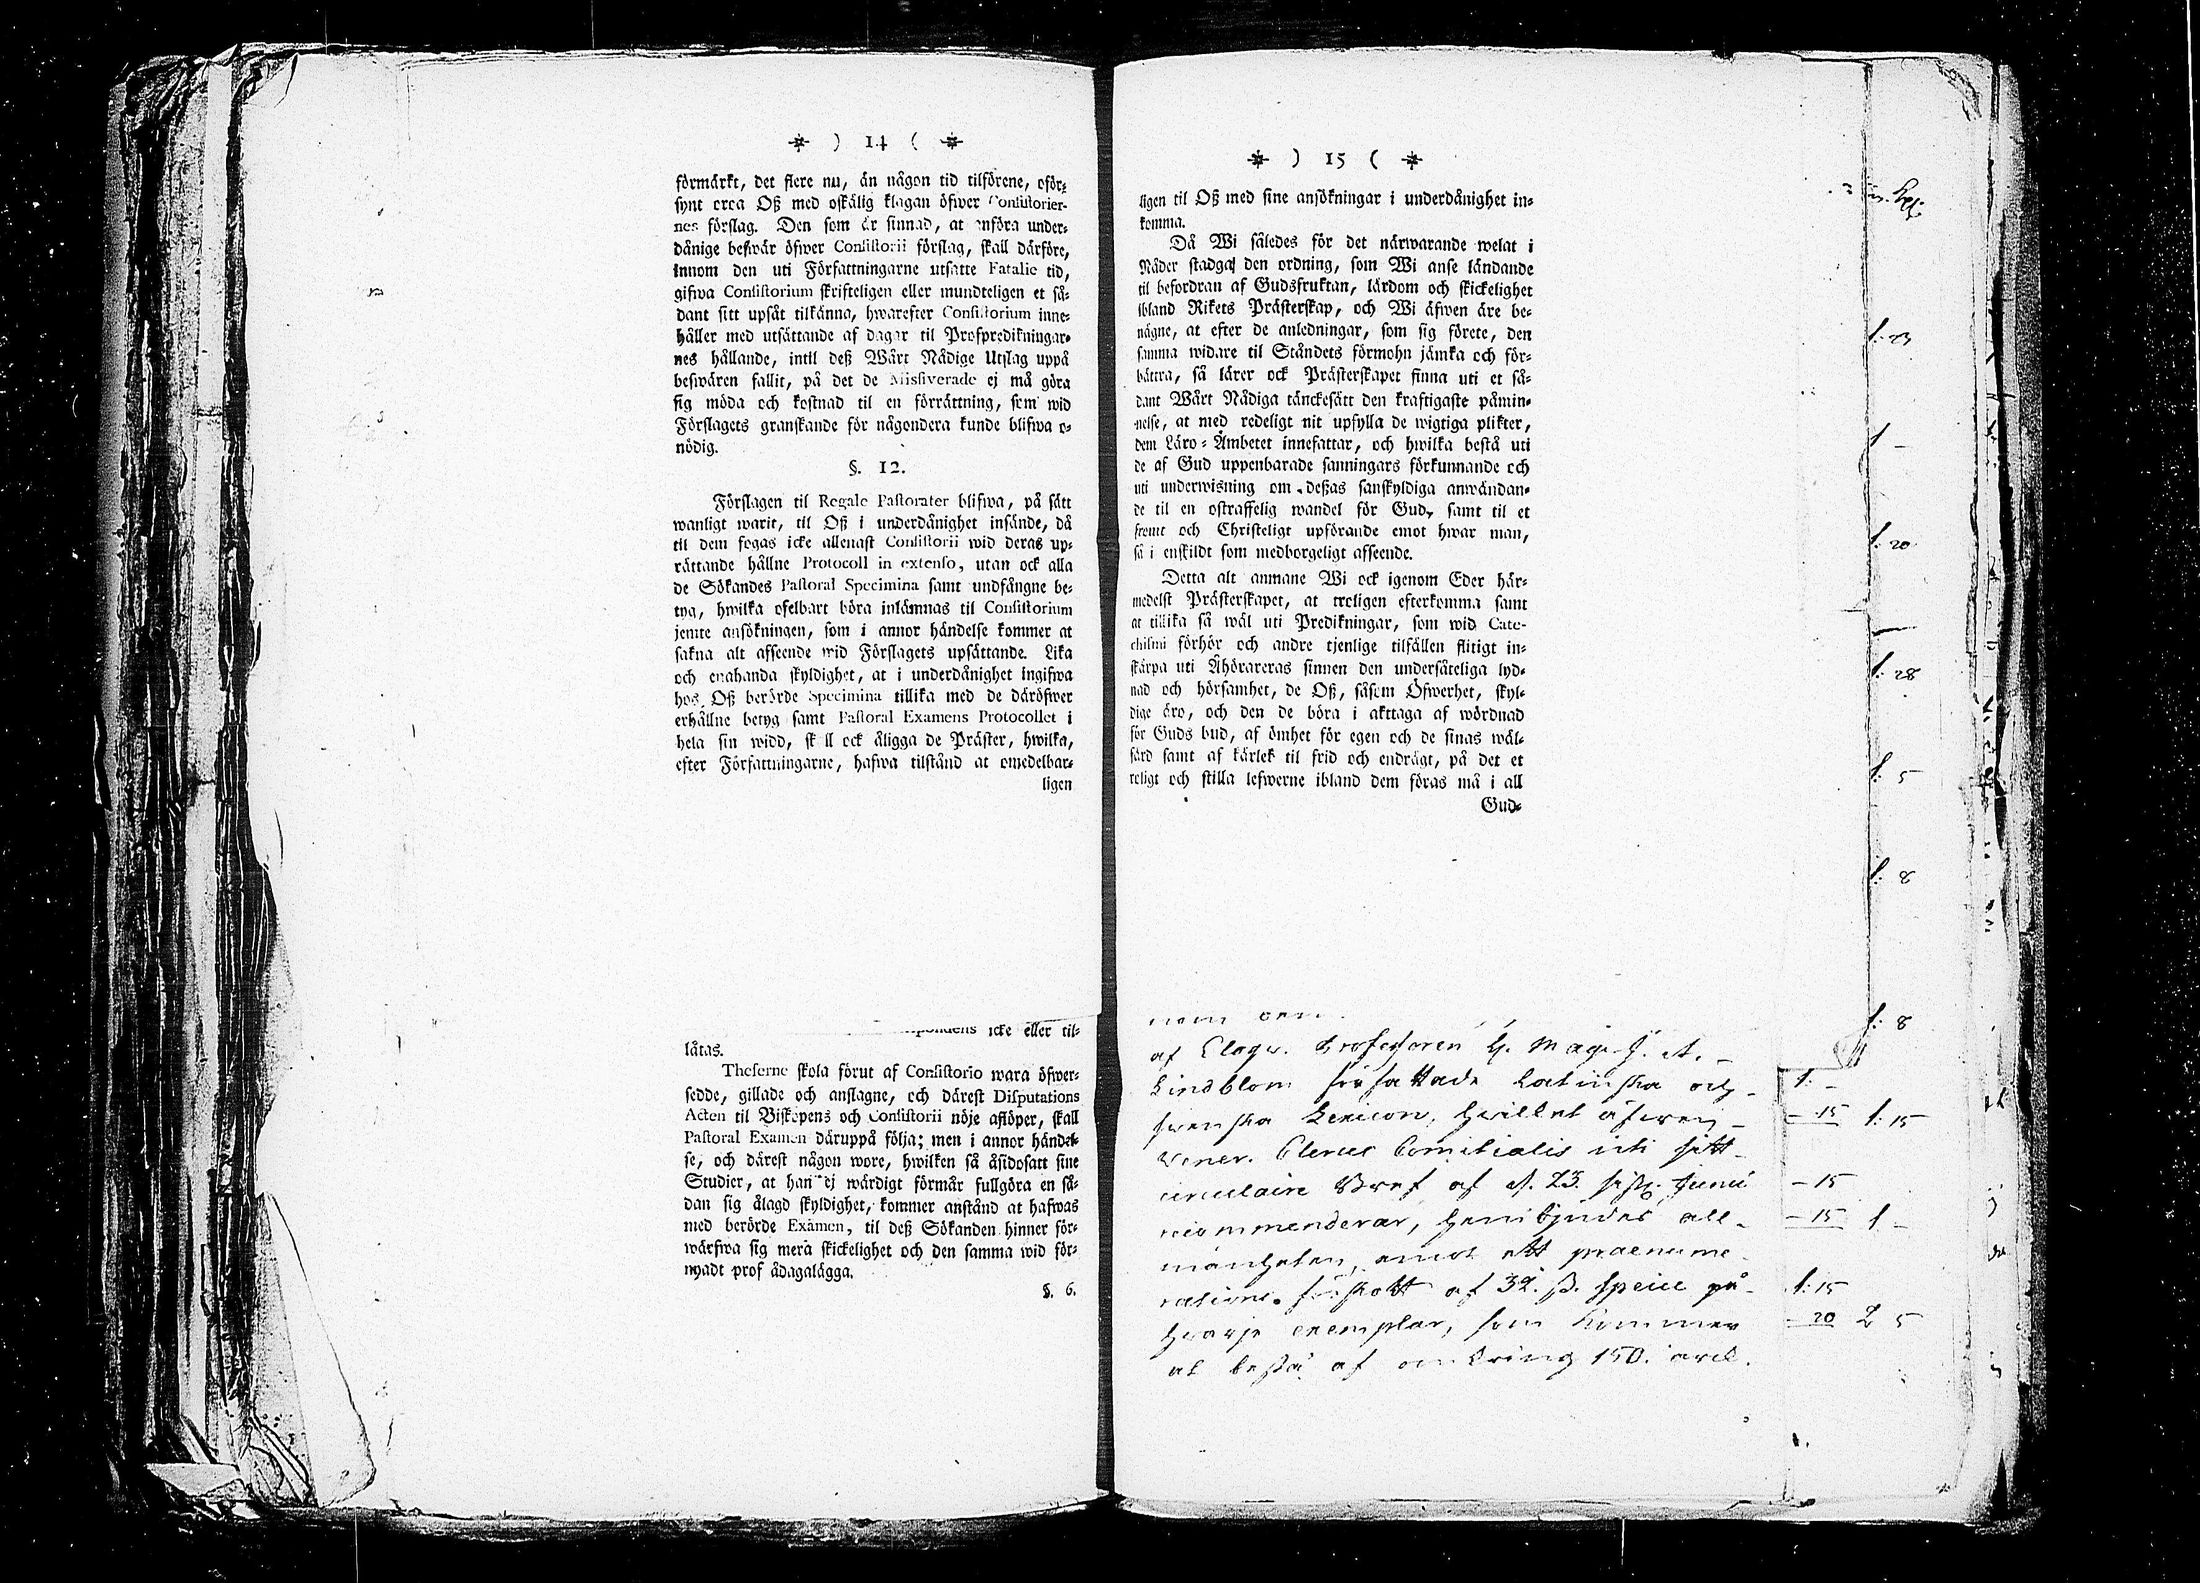 ) 14 (
förmärkt, det flere nu, än någon tid tilförene, oför-
synt oroa Oß med oskälig klagan öfwer Consistorier-
nes förslag. Den som är sinnad, at anföra under-
dånige beswär öfwer Consistorii förslag, skall därföre,
innom den uti Författningarne utsatte Fatalie tid,
gifwa Consistorium skrifteligen eller mundteligen et så-
dant sitt upsåt tilkänna, hwarefter Consistorium inne-
håller med utsättande af dagar til Profpredikningar-
nes hållande, intil deß Wårt Nådige Utslag uppå
beswären fallit, på det de Missiverade ej må göra
sig möda och kostnad til en förrättning, som wid
Förslagets granskande för någondera kunde blifwa o-
nödig.
§. 12.
Förslagen til Regale Pastorater blifwa, på sätt
wanligt warit, til Oß i underdånighet insände, då
til dem fogas icke allenast Consistorii wid deras up-
rättande hållne Protocoll in extenso, utan ock alla
de Sökandes Pastoral Specimina samt undfångne be-
tyg, hwilka ofelbart böra inlämnas til Consistorium
jemte ansökningen, som i annor händelse kommer at
sakna alt afseende wid Förslagets upsättande. Lika
och enahanda skyldighet, at i underdånighet ingifwa
hos Oß berörde Specimina tillika med de däröfwer
erhållne betyg samt Pastoral Examens Protocollet i
hela sin widd, skall ock åligga de Präster, hwilka,
efter Författningarne, hafwa tilstånd at omedelbar-
ligen
icke eller til-
låtas.
Theserne skola förut af Consistorio wara öfwer-
sedde, gillade och anslagne, och därest Disputations
Acten til Biskopens och Consistorii nöje aflöper, skall
Pastoral Examen däruppå följa; men i annor händel-
se, och därest någon wore, hwilken så åsidosatt sine
Studier, at han ej wärdigt förmår fullgöra en så-
dan sig ålagd skyldighet, kommer anstånd at hafwas
med berörde Examen, til deß Sökanden hinner för-
wärfwa sig mera skickelighet och den samma wid för-
nyadt prof ådagalägga.
§. 6.
) 15 (
ligen til Oß med sine ansökningar i underdånighet in-
komma.
Då Wi således för det närwarande welat i
Nåder stadga den ordning, som Wi anse ländande
til befordran af Gudsfruktan, lärdom och skickelighet
ibland Rikets Prästerskap, och Wi äfwen äre be-
nägne, at efter de anledningar, som sig förete, den
samma widare til Ståndets förmohn jämka och för-
bättra, så lärer ock Prästerskapet finna uti et så-
dant Wårt Nådiga tänckesätt den kraftigaste påmin-
nelse, at med redeligt nit upfylla de wigtiga plikter,
dem Läro-Ämbetet innefattar, och hwilka bestå uti
de af Gud uppenbarade sanningars förkunnande och
uti underwisning om deßas sanskyldiga anwändan-
de til en ostraffelig wandel för Gud, samt til et
fromt och Christeligt upförande emot hwar man,
så i enskildt som medborgeligt afseende.
Detta alt anmane Wi ock igenom Eder här-
medelst Prästerskapet, at troligen efterkomma samt
at tillika så wäl uti Predikningar, som wid Cate-
chismi förhör och andre tjenlige tilfällen flitigt in-
skärpa uti Åhörareras sinnen den undersåteliga lyd-
nad och hörsamhet, de Oß, såsom Öfwerhet, skyl-
dige äro, och den de böra i akttaga af wördnad
för Guds bud, af ömhet för egen och de sinas wäl-
färd samt af kärlek til frid och endrägt, på det et
roligt och stilla lefwerne ibland dem föras må i all
Gud-
af Professoren H. Mag. J. A.
Lindblom författade Latinska och
Swenska Lexicon, hwilket äfwen
Vener. Clerus Comitialis uti sitt
circulaire Bref af d. 23. sistl. Junii
recommenderar, hembjudes all-
mänheten, emot ett praenume-
rations förskott af 32. ß. specie på
hwarje exemplar, som kommer
at bestå af omkring 150. ark.
1: 23
1 -
1: 20
1: 28
1: 5
1: 8
1: 8
1: -
- 15 1: 15
- 15
- 15 1 -
1: 15
- 20 2 5